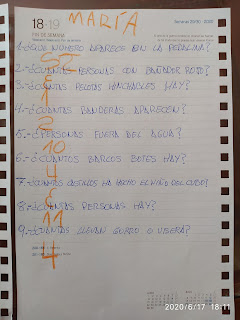 18-19
MARÍA
FIN DE SEMANA
1.-¿QUE NÚMERO APARECE EN LA PEDALINA?
52
2.-¿CUANTAS PERSONAS CON BAÑADOR ROJO?
3.-¿CUANTAS PELOTAS HINCHABLES HAY?
1
4.-¿CUANTAS BANDERAS APARECEN?
2
5.-¿PERSONAS FUERA DEL AGUA?
10
6.-¿CUANTOS BARCOS BOTES HAY?
4
7.-¿CUANTOS CASTILLOS HA HECHO EL NIÑO DEL CUBO?
6
8.-¿CUANTAS PERSONAS HAY?
11
9.-¿CUANTOS LLEVAN GORRO O VISERA?
4
2020/6/17 18:11